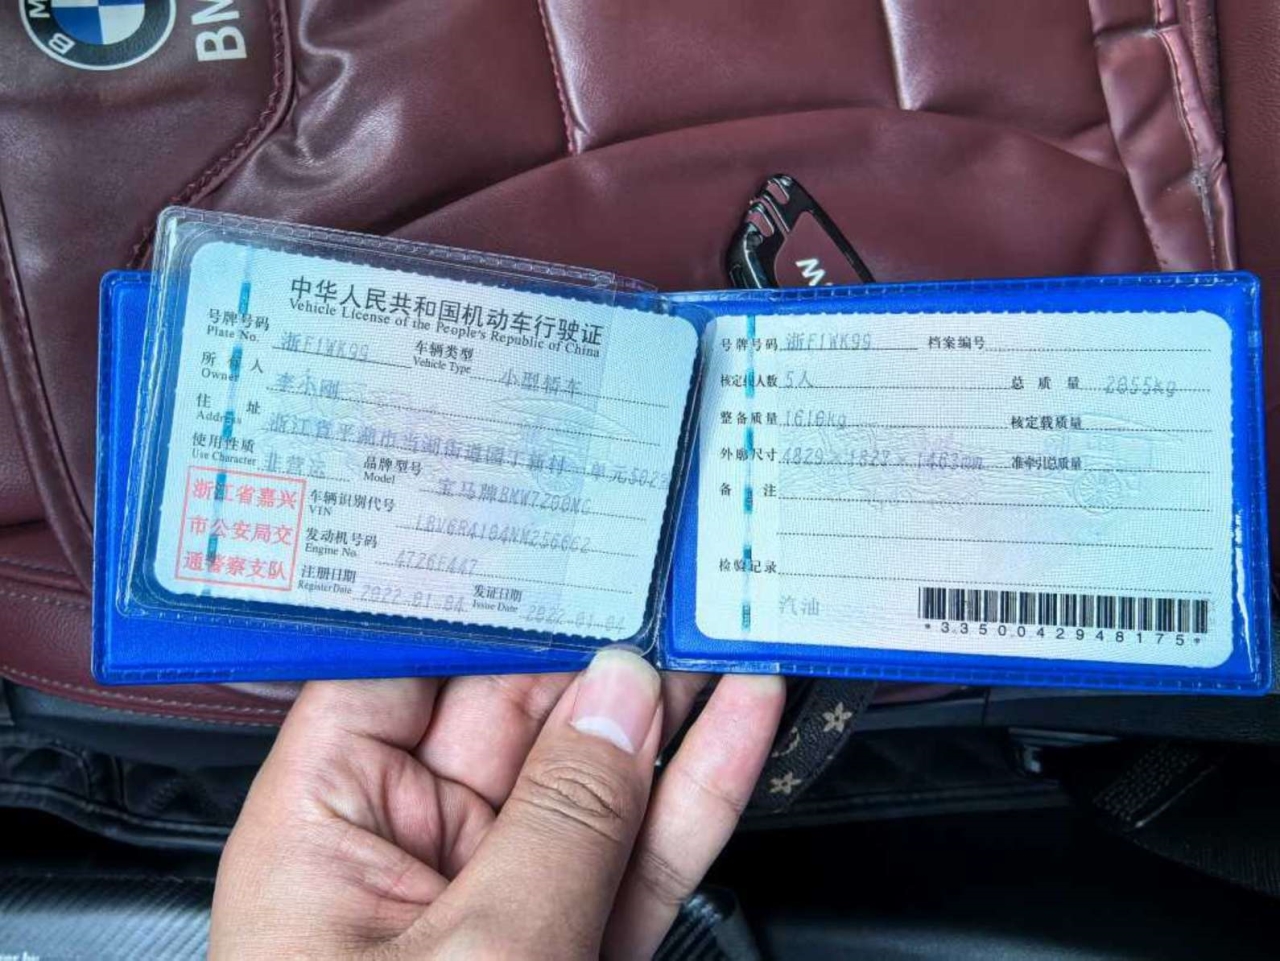 BMW
BM
中华人民共和国机动车行驶证
Vehicle License of the People's Republic of China
号牌号码 浙F1WK99 车辆类型 小型轿车
Plate No. Vehicle Type
所有人 李小刚
Owner
住址 浙江省平湖市当湖街道园丁新村 单元502
Address
使用性质 非营运 品牌型号 宝马牌
Use Character Model
浙江省嘉兴
市公安局交
通警察支队
车辆识别代号
VIN
发动机号码
Engine No.
注册日期 2022-01-04 发证日期 2022-01-04
Register Date Issue Date
号牌号码 浙F1WK99 档案编号
核定载人数 5人 总质量 2055kg
整备质量 1610kg 核定载质量
外廓尺寸 4829×1827×1463mm 准牵引总质量
备注
检验记录
汽油
*3350042948175*